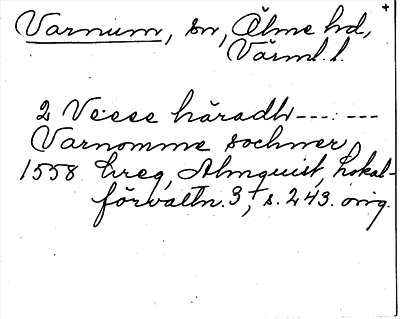 Varnum, sn, Älme hd,
Värml. l.
2 Veise häradh --- . ---
Varnomme sochner
1558 hreg, Almquist, Lokal-
förvaltn. 3, s. 243. orig.